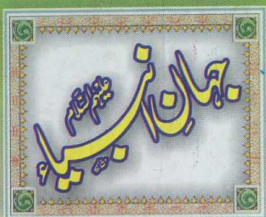 جہانِ انبیاء علیہم السلام